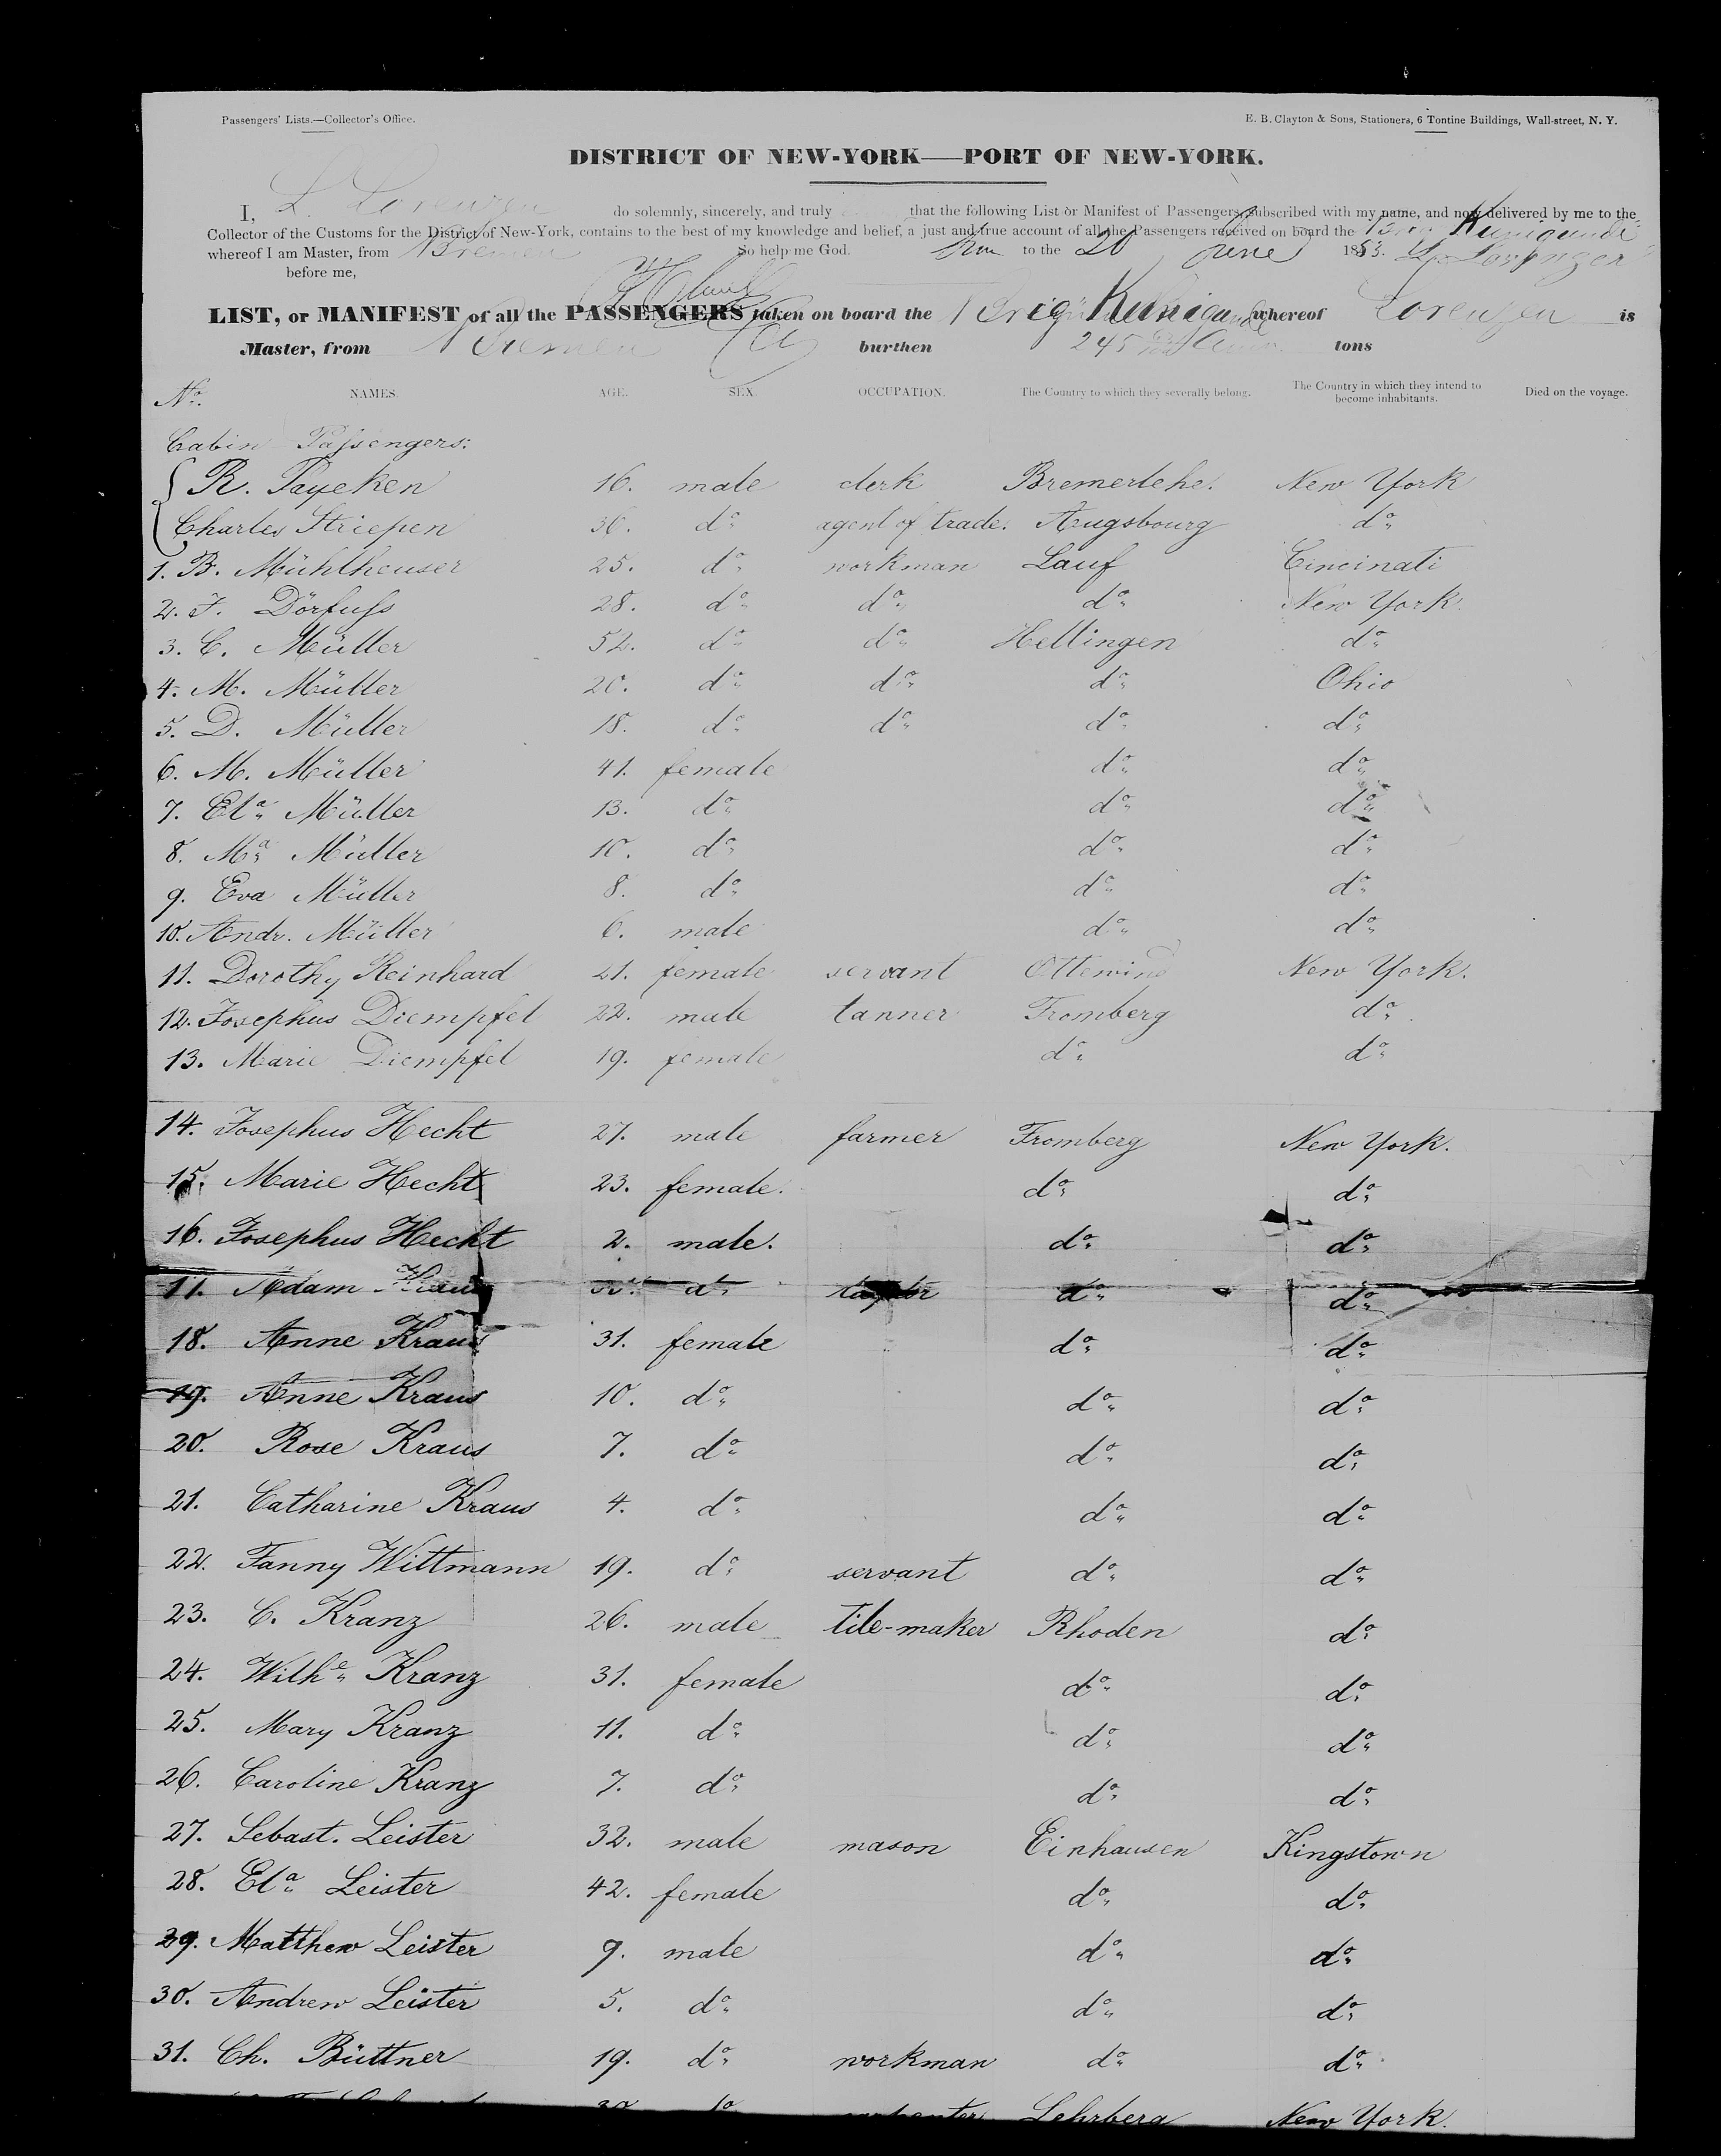 Passengers' Lists.—Collector's Office.
E. B. Clayton & Sons, Stationers, 6 Tontine Buildings, Wall-street, N. Y.
DISTRICT OF NEW-YORK—PORT OF NEW-YORK.
I, L. Lorenzen do solemnly, sincerely, and truly that the following List or Manifest of Passengers, subscribed with my name, and now delivered by me to the
Collector of the Customs for the District of New-York, contains to the best of my knowledge and belief, a just and true account of all the Passengers received on board the Brig Kunigunde
whereof I am Master, from Bremen So help me God. to the 20 June 1853.
before me,
LIST, or MANIFEST of all the PASSENGERS taken on board the Brig Kunigunde whereof Lorenzen is
Master, from Bremen burthen 245 tons
No. NAMES. AGE. SEX. OCCUPATION. The Country to which they severally belong. The Country in which they intend to become inhabitants. Died on the voyage.
Cabin Passengers:
R. Payeken 16. male clerk Bremerlehe. New York
Charles Striepen 36. do agent of trade. Augsbourg do
1. B. Mühlheuser 25. do workman Lauf Cincinati
2. F. Dörfuss 28. do do do New York.
3. C. Müller 52. do do Hellingen do
4. M. Müller 20. do do do Ohio
5. D. Müller 18. do do do do
6. M. Müller 41. female do do
7. Ela Müller 13. do do do
8. Ma Müller 10. do do do
9. Eva Müller 8. do do do
10. Andr. Müller 6. male do do
11. Dorothy Reinhard 21. female servant Ottewind New York.
12. Josephus Diempfel 22. male tanner Fromberg do
13. Marie Diempfel 19. female do do
14. Josephus Hecht 27. male farmer Fromberg New York.
15. Marie Hecht 23. female. do do
16. Josephus Hecht 2. male. do do
17. Adam Kraus do do do
18. Anne Kraus 31. female do do
19. Anne Kraus 10. do do do
20. Rose Kraus 7. do do do
21. Catharine Kraus 4. do do do
22. Fanny Wittmann 19. do servant do do
23. C. Kranz 26. male tile-maker Rhoden do
24. Wilhe Kranz 31. female do do
25. Mary Kranz 11. do do do
26. Caroline Kranz 7. do do do
27. Sebast. Leister 32. male mason Einhausen Kingstown
28. Ela Leister 42. female do do
29. Matthew Leister 9. male do do
30. Andrew Leister 5. do do do
31. Ch. Büttner 19. do workman do do
carpenter Lehrberg New York.